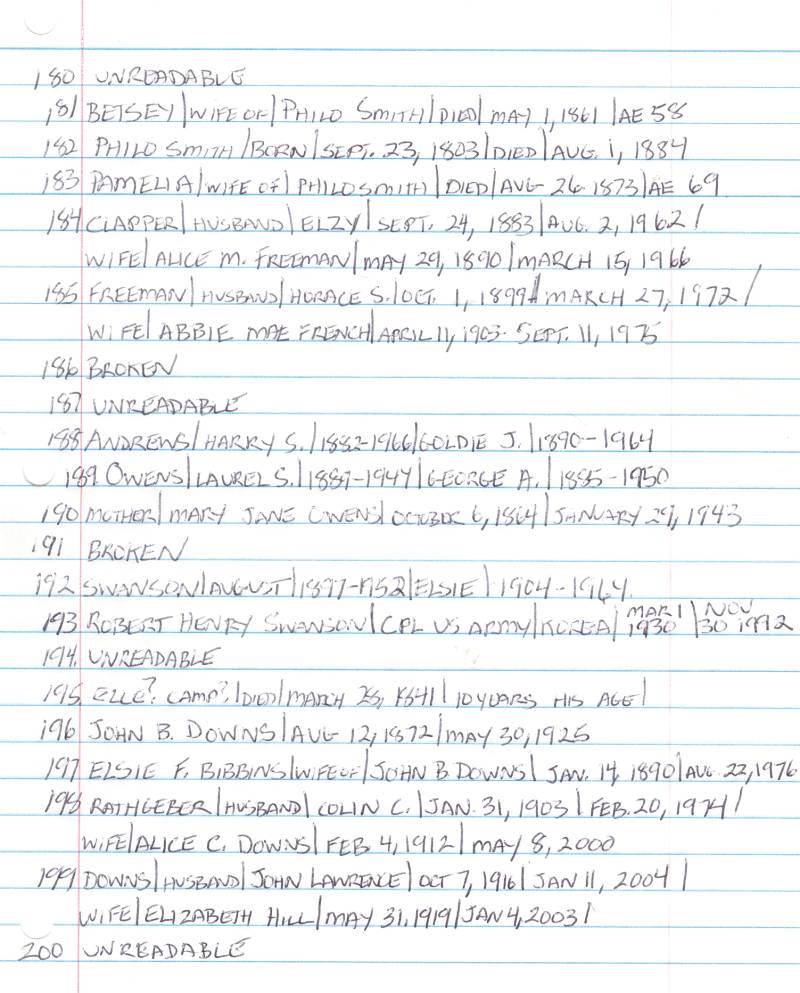 180 UNREADABLE
181 BETSEY|WIFE OF|PHILO SMITH|DIED|MAY 1, 1861|AE 58
182 PHILO SMITH|BORN|SEPT. 23, 1803|DIED|AUG. 1, 1884
183 PAMELIA|WIFE OF|PHILO SMITH|DIED|AUG 26 1873|AE 69
184 CLAPPER|HUSBAND|ELZY|SEPT. 24, 1883|AUG. 2, 1962/
WIFE|ALICE M. FREEMAN|MAY 29, 1890|MARCH 15, 1966
185 FREEMAN|HUSBAND|HORACE S.|OCT. 1, 1899|MARCH 27, 1972/
WIFE|ABBIE MAE FRENCH|APRIL 11, 1903- SEPT. 11, 1975
186 BROKEN
187 UNREADABLE
188 ANDREWS|HARRY S.|1882-1966|GOLDIE J.|1890-1964
189 OWENS|LAUREL S.|1887-1947|GEORGE A.|1885-1950
190 MOTHER|MARY JANE OWENS|OCTOBER 6, 1864|JANUARY 29, 1943
191 BROKEN
192 SWANSON|AUGUST|1897-1952|ELSIE|1904-1964
193 ROBERT HENRY SWANSON|CPL US ARMY|KOREA|MAR 1 1930|NOV 30 1992
194. UNREADABLE
195 ELLE? CAMP?|DIED|MARCH 28, 1841|10 YUARS HIS AGE|
196 JOHN B. DOWNS|AUG 12, 1872|MAY 30, 1925
197 ELSIE F. BIBBINS|WIFE OF|JOHN B DOWNS|JAN. 14, 1890|AUG. 22, 1976
198 RATHGEBER|HUSBAND|COLIN C.|JAN. 31, 1903|FEB. 20, 1974/
WIFE|ALICE C. DOWNS|FEB 4, 1912|MAY 8, 2000
199 DOWNS|HUSBAND|JOHN LAWRENCE|OCT 7, 1916|JAN 11, 2004|
WIFE|ELIZABETH HILL|MAY 31, 1919|JAN 4, 2003|
200 UNREADABLE